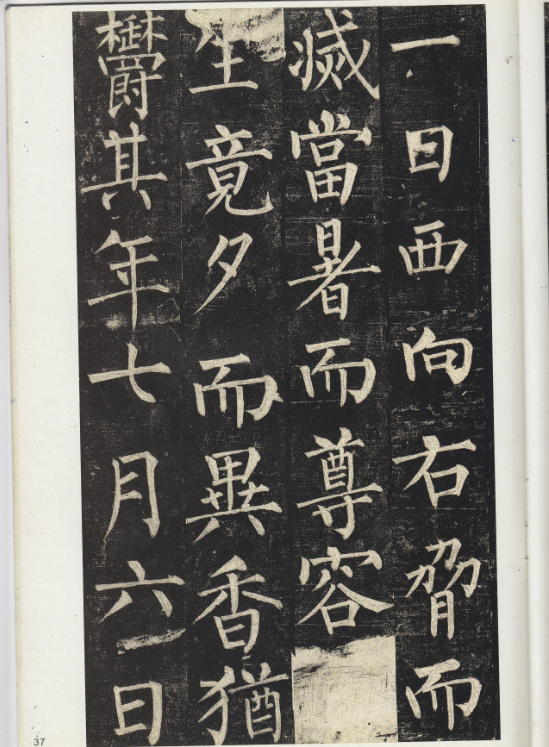 一日西向右脅而
滅當暑而尊容
生竟夕而異香猶
鬱其年七月六日
37